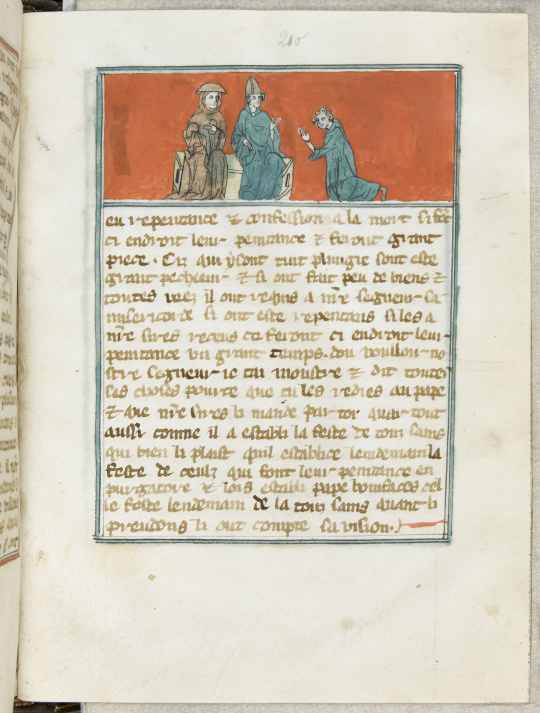 210
en repentance & confession a la mort si font
ci endroit leur penitance & feront grant
piece. Cil qui ysont tuit plungie sont este
grant pecheeur & si ont fait peu de biens &
toutes veez il ont requis a nr̄e seigneur sa
misericorde si ont este repentans si les a
nr̄e sires receus ce feront ci endroit leur
penitance un grant temps. dou voulloir no
stre seigneur ie tai moustre & dit toutes
ses choses pource que tu les redies au pape
& que nr̄e sires li mande par toi que tout
aussi comme il a establi la feste de touz sains
qui bien li plaist quil establice lendemain la
feste de ceulz qui font leur penitance en
purgatoire & lors establi pape bonifaces cel
le feste lendemain de la touz sains quant li
preudons li out compte sa vision.